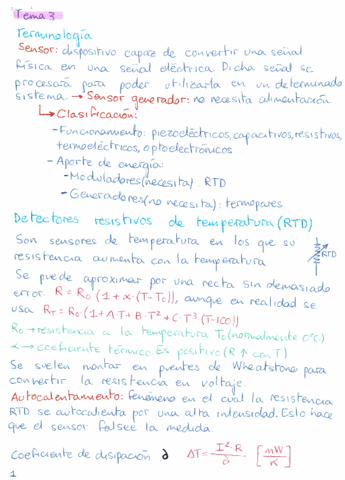 Tema 3
Terminología
Sensor: dispositivo capaz de convertir una señal
física en una señal eléctrica. Dicha señal se
procesará para poder utilizarla en un determinado
sistema. → Sensor generador: no necesita alimentación
↳ Clasificación:
- Funcionamiento: piezoeléctricos, capacitivos, resistivos,
termoeléctricos, optoelectrónicos
- Aporte de energía:
- Moduladores (necesita): RTD
- Generadores (no necesita): termopares.
Detectores resistivos de temperatura (RTD)
Son sensores de temperatura en los que su
resistencia aumenta con la temperatura
RTD
Se puede aproximar por una recta sin demasiado
error. R = R₀ (1 + α · (T - T₀)), aunque en realidad se
usa R_T = R₀ · (1 + A·T + B·T² + C·T³ (T-100))
R₀ → resistencia a la temperatura T₀ (normalmente 0ºC)
α → coeficiente térmico. Es positivo (R ↑ con T)
Se suelen montar en puentes de Wheatstone para
convertir la resistencia en voltaje.
Autocalentamiento: fenómeno en el cual la resistencia
RTD se autocalienta por una alta intensidad. Esto hace
que el sensor falsee la medida.
Coeficiente de disipación ∂ ΔT = I²·R / ∂ [mW / K]
1